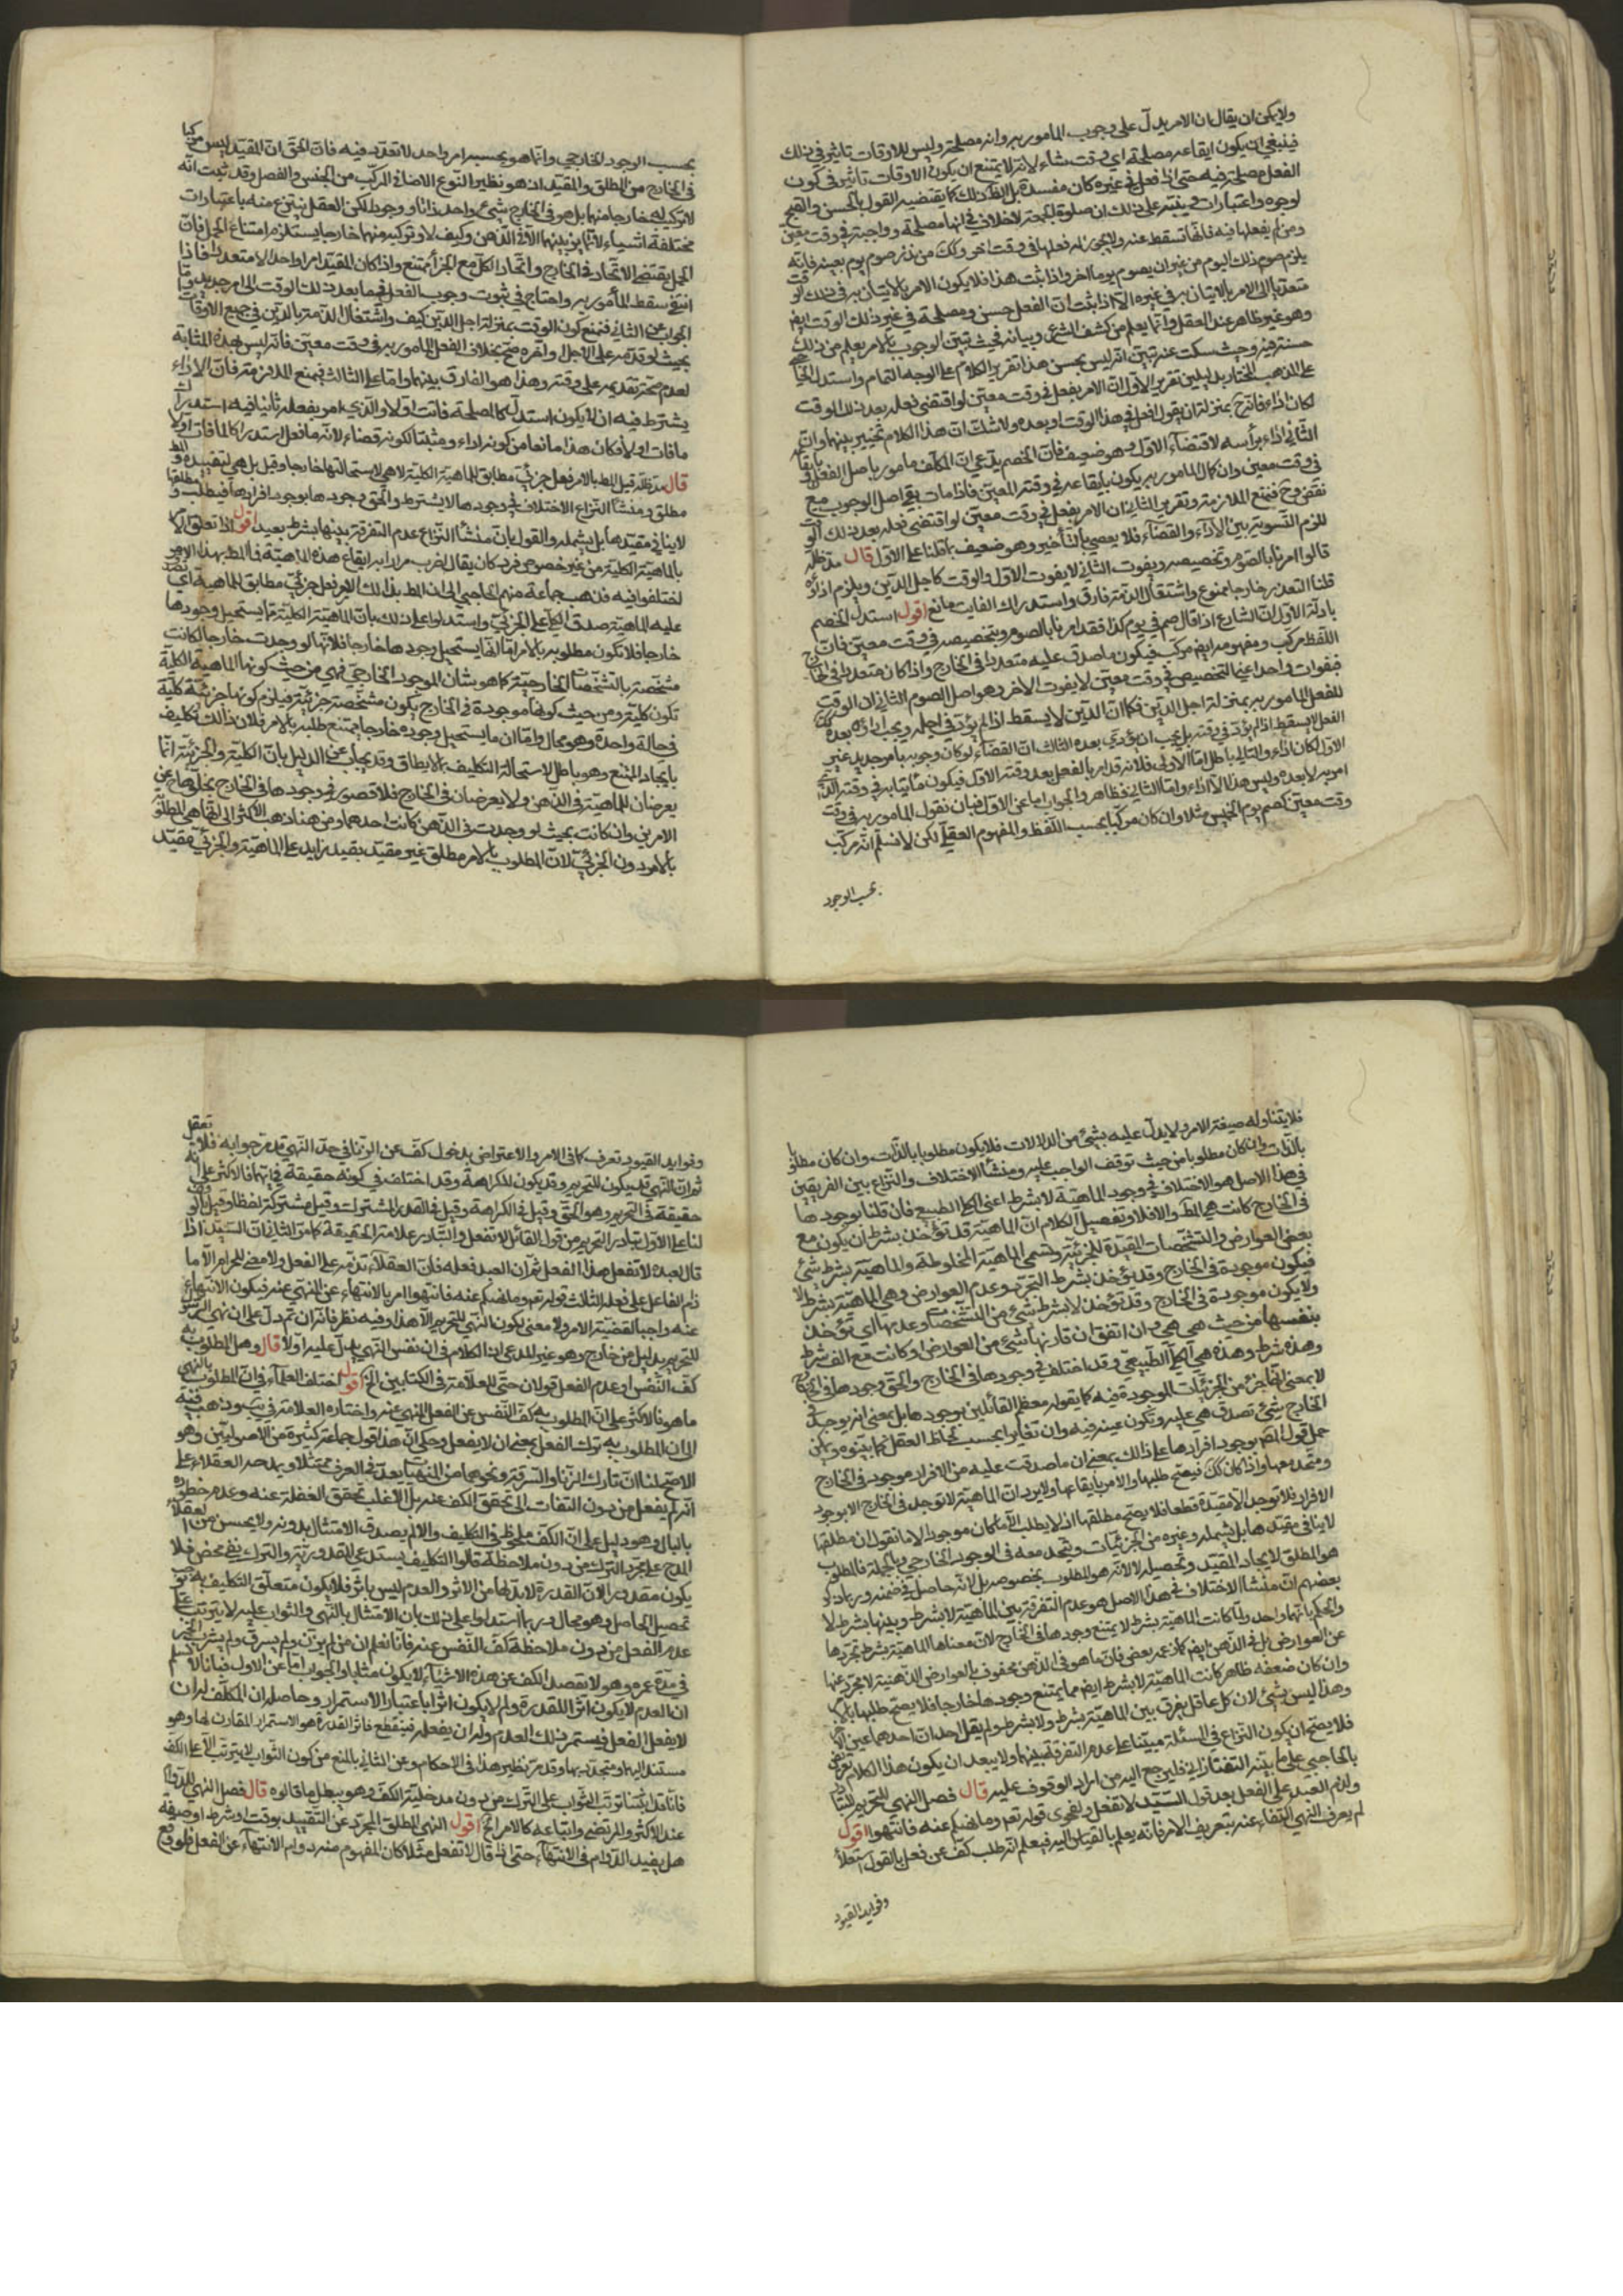 ولا يمكن ان يقال ان الامر يدل على وجوب المامور به وانه مصلحة وليس للاوقات تاثير في ذلك
فينبغي ان يكون ايقاعه مصلحة اي وقت شاء لانه لا يمتنع ان يكون الاوقات تاثير في كون
الفعل مصلحة فيه حتى اذا فعل في غيره كان مفسدة بل الظ ذلك كما يقتضيه القول بالحسن والقبح
لوجوه واعتبارات وينبه على ذلك ان صلوة الجمعة لاخلاف في انها مصلحة وواجبة في وقت معين
ومن لم يفعلها فيه فانها تسقط عنه ولا يجوز له فعلها في وقت اخر وكك من نذر صوم يوم بعينه فانه
يلزم صوم ذلك اليوم من غير ان يصوم يوما اخر واذا ثبت هذا فلا يكون الامر بالاتيان به في ذلك الوقت
متعديا الى الامر بالاتيان به في غيره الا اذا ثبت ان الفعل حسن ومصلحة في غير ذلك الوقت ايضا
وهو غير ظاهر عند العقل وانما يعلم من كشف الشرع وبيانه فحيث تبين الوجوب بالامر يعلم من ذلك
حسنه فيه وحيث سكت عنه تبين انه ليس بحسن هذا تقرير الكلام على الوجه التمام واستدل
على المذهب المختار بدليلين تقرير الاول ان الامر بفعل في وقت معين لو اقتضى فعله بعد ذلك الوقت
لكان اداء فانه ح بمنزلة ان يقول افعل في هذا الوقت او بعده ولا شك ان هذا الكلام تخيير بينهما وان
الثاني اداء برأسه لا قضاء الاول وهو ضعيف فان الخصم يدعي ان المكلف مامور باصل الفعل
في وقت معين وان كان المامور به يكون بايقاعه في وقته المعين فاذا مات بقي اصل الوجوب مع
نقص وح فنمنع الملازمة وتقرير الثاني ان الامر بفعل في وقت معين لو اقتضى فعله بعد ذلك الوقت
للزم التسوية بين الاداء والقضاء فلا يعصي بالتاخير وهو ضعيف بما قلنا على الاول قال مد ظله
قالوا امرنا بالصوم وتخصيصه وبفوت الثاني لا يفوت الاول والوقت كاجل الدين ويلزم اداؤه
قلنا التعدد خارجا ممنوع واشتغال الذمة فارق واستدراك الفايت مانع اقول استدل الخصم
بادلة الاول ان الشارع اذا قال صم في يوم كذا فقد امرنا بالصوم وبتخصيصه في وقت معين فان
اللفظ مركب ومفهومه ايض مركب فيكون ما صدق عليه متعددا في الخارج واذا كان متعددا في الخارج
فبفوات واحد اعني التخصيص في وقت معين لا يفوت الاخر وهو اصل الصوم الثاني ان الوقت
للفعل المامور به بمنزلة اجل الدين فكما ان الدين لا يسقط اذا لم يؤد في اجله ويجب اداؤه بعده كذا
الفعل لا يسقط اذا لم يؤد في وقته بل يجب ان يؤدي بعده الثالث ان القضاء لو كان وجوبه بامر جديد غير
الاول لكان اداء والتالي باطل اما الاولى فلانه قد امر بالفعل بعد وقته الاول فيكون ماتيا به في وقته الذي
امر به لا بعده وليس هذا الا اداء واما الثاني فظاهر والجواب اما عن الاول فبان نقول المامور به في وقت
وقت معين كصم يوم الخميس مثلا وان كان مركبا بحسب اللفظ والمفهوم العقلي لكن لا نسلم انه مركب
بحسب الوجود
بحسب الوجود الخارجي وانما هو بحسبه امر واحد لا تعدد فيه فان الحق ان المقيد ليس مركبا
في الخارج من المطلق والمقيد اذ هو نظير النوع الاضافي المركب من الجنس والفصل وقد ثبت انه
لا تركيب له خارجا منهما بل هو في الخارج شئ واحد ذاتا ووجودا لكن العقل ينتزع منه باعتبارات
مختلفة اشياء لا تمايز بينها الا في الذهن وكيف لا وتركبه منهما خارجا يستلزم امتناع الحمل فان
الحمل يقتضي الاتحاد في الخارج واتحاد الكل مع الجزء ممتنع واذا كان المقيد امرا واحدا لا متعددا فاذا
انتفى سقط المأمور به واحتاج في ثبوت وجوب الفعل فيما بعد ذلك الوقت الى امر جديد واما
الجواب عن الثاني فنمنع كون الوقت بمنزلة اجل الدين كيف واشتغال الذمة بالدين في جميع الاوقات
بحيث لو قدمه على الاجل واخره صح بخلاف الفعل المامور به في وقت معين فانه ليس بهذه المثابة
لعدم صحة تقديمه على وقته وهذا هو الفارق بينهما واما على الثالث فبمنع الملازمة فان الاداء
يشترط فيه ان لا يكون استدراكا لمصلحة فاتت اولا والذي امر بفعله ثانيا فيه استدراك
ما فات اولا فكان هذا مانعا من كونه اداء ومثبتا لكونه قضاء لانه ما فعل استدراكا لما فات اولا
قال مد ظله قيل المط بالامر فعل جزئي مطابق للماهية الكلية لا هي لاستحالتها خارجا وقيل بل هي لتقييده والمط
مطلق ومنشأ النزاع الاختلاف في وجودها لا بشرط والحق وجودها بوجود افرادها فيطلب ومطلقها
لا ينافي مقيدها بل يشمله والقول بان منشأ النزاع عدم التفرقة بينها بشرط بعيد اقول اذا تعلق الامر
بالماهية الكلية من غير خصوص فرد كان يقال اضرب مرادا به ايقاع هذه الماهية فالمط بهذا الامر
اختلفوا فيه فذهب جماعة منهم الحاجبي الى ان المط بذلك الامر فعل جزئي مطابق للماهية اي تصدق
عليه الماهية صدق الكلي على الجزئي واستدلوا على ذلك بان الماهية الكلية مما يستحيل وجودها
خارجا فلا تكون مطلوبة بالامر اما انها يستحيل وجودها خارجا فلانها لو وجدت خارجا لكانت
مشخصة بالتشخصات الخارجية كما هو شان الموجود الخارجي فهي من حيث كونها الماهية الكلية
تكون كلية ومن حيث كونها موجودة في الخارج يكون مشخصة جزئية فيلزم كونها جزئية كلية
في حالة واحدة وهو محال واما ان ما يستحيل وجوده خارجا يمتنع طلبه بالامر فلان ذلك تكليف
بايجاد الممتنع وهو باطل لاستحالة التكليف بما لا يطاق وقد يجاب عن الدليل بان الكلية والجزئية انما
يعرضان للماهية في الذهن ولا يعرضان في الخارج فلا قصور في وجودها في الخارج بخلوها عن
الامرين وان كانت بحيث لو وجدت في الذهن كانت احدهما ومن هنا ذهب الاكثر الى انها هي المطلوبة
بالامر دون الجزئي لان المطلوب بالامر مطلق غير مقيد بقيد زايد على الماهية والجزئي مقيد
فلا يتناوله صيغة الامر ولا يدل عليه بشئ من الدلالات فلا يكون مطلوبا بالذات وان كان مطلوبا
بالذات وان كان مطلوبا من حيث توقف الواجب عليه ومنشأ الاختلاف والنزاع بين الفريقين
في هذا الاصل هو الاختلاف في وجود الماهية لا بشرط اعني الكلي الطبيعي فان قلنا بوجودها
في الخارج كانت هي المط والا فلا وتفصيل الكلام ان الماهية قد تؤخذ بشرط ان يكون مع
بعض العوارض والتشخصات المقيدة للجزئية وتسمى الماهية المخلوطة والماهية بشرط شئ
فيكون موجودة في الخارج وقد تؤخذ بشرط التجرد وعدم العوارض وهي الماهية بشرط لا
ولا يكون موجودة في الخارج وقد تؤخذ لا بشرط شئ من التشخصات وعدمها اي تؤخذ
بنفسها من حيث هي هي وان اتفق ان قارنها شئ من العوارض او كانت مع الف شرط
وهذه شرط وهذه هي الكلي الطبيعي وقد اختلف في وجودها في الخارج والحق وجودها في الخارج
لا بمعنى انها جزء من الجزئيات الموجودة فيه كما يقوله معظم القائلين بوجودها بل بمعنى انه يوجد في
الخارج شئ تصدق هي عليه وتكون عينه فيه وان تغايرا بحسب لحاظ العقل كما بينوه ويمكن
حمل قول المصنف بوجود افرادها على ذلك بمعنى ان ما صدقت عليه من الافراد موجود في الخارج
ومتحد معها واذا كان كك فيصح طلبها والامر بايقاعها ولا يرد ان الماهية لا توجد في الخارج الا بوجود
الافراد فلا توجد الا مقيدة قطعا فلا يصح مطلقها اذ لا يطلب الا ما كان موجودا لانا نقول ان مطلقها
لا ينافي مقيدها بل يشمله وغيره من الجزئيات ويتحد معه في الوجود الخارجي وبالجملة فالمطلوب
هو المطلق لا ايجاد المقيد وتحصيله لا لانه هو المطلوب بخصوصه بل لانه حاصل في ضمنه
بعضهم ان منشأ الاختلاف في هذا الاصل هو عدم التفرقة بين الماهية لا بشرط وبينها بشرط لا
والحكم بانهما واحد ولما كانت الماهية بشرط لا يمتنع وجودها في الخارج لان معناها الماهية بشرط تجردها
عن العوارض بل في الذهن ايضا كما زعمه بعض فان ما هو في الذهن محفوف بالعوارض الذهنية لا مجرد عنها
وان كان ضعفه ظاهرا كانت الماهية لا بشرط ايضا مما يمتنع وجودها خارجا فلا يصح طلبها بالامر
وهذا ليس بشئ لان كل عاقل يفرق بين الماهية بشرط ولا بشرط ولم يقل احد ان احدهما عين
فلا يصح ان يكون النزاع في المسئلة مبتنيا على عدم التفرقة بينهما ولا يبعد ان يكون هذا الكلام تعريض
بالحاجبي على ما بينه التفتازاني فليرجع اليه من اراد الوقوف عليه قال فصل النهي للتحريم للتبادر
ولذم العبد على الفعل بعد قول السيد لا تفعل ولفحوى قوله تعم وما نهيكم عنه فانتهوا اقول
لم يعرف النهي اكتفاء عنه بتعريف الامر فانه يعلم بالقياس اليه فيعلم انه طلب كف عن فعل بالقول استعلاء
وفوايد القيود
وفوايد القيود تعرف كما في الامر والاعتراض بدخول كف عن الزنا في حد النهي قد مر جوابه فلا تغفل
ثم ان النهي قد يكون للتحريم وقد يكون للكراهة وقد اختلف في كونه حقيقة في ايهما فالاكثر على انه
حقيقة في التحريم وهو الحق وقيل في الكراهة وقيل في القدر المشترك وقيل مشترك لفظا وقيل بالوقف
لنا على الاول تبادر التحريم من قول القائل لا تفعل والتبادر علامة الحقيقة كما مر الثاني ان السيد اذا
قال لعبده لا تفعل هذا الفعل ثم ان العبد فعله فان العقلاء تذمه على الفعل ولا معنى للحرام الا ما
ذم الفاعل على فعله الثالث قوله تعم وما نهيكم عنه فانتهوا امر بالانتهاء عن المنهي عنه فيكون الانتهاء
عنه واجبا لقضية الامر ولا معنى بكون النهي للتحريم الا هذا وفيه نظر فانه ان تم دل على ان نهي الرسول
للتحريم بدليل من خارج وهو غير المدعى اذ الكلام في ان نفس النهي يدل عليه او لا قال وهل المطلوب به
كف النفس او عدم الفعل قولان حتى للعلامة في الكتابين الخ اقول اختلف العلماء في ان المطلوب بالنهي
ما هو فالاكثر على ان المطلوب به كف النفس عن الفعل المنهي عنه واختاره العلامة في يب وذهب فئة
الى ان المطلوب به ترك الفعل بمعنى ان لا يفعل وحكي ان هذا قول جماعة كثيرة من الاصوليين وهو
الاصح لنا ان تارك الزنا والسرقة ونحوهما من المنهيات يعد في العرف ممتثلا ويمدحه العقلاء على
انه لم يفعل من دون التفات الى تحقق الكف عنه بل الاغلب تحقق الغفلة عنه وعدم خطوره
بالبال وهو دليل على ان الكف ملحوظ في التكليف والا لم يصدق الامتثال بدونه ولا يحسن من العقلاء
المدح على مجرد الترك من دون ملاحظة قالوا التكليف يستدعي المقدورية والترك نفي محض فلا
يكون مقدورا لان القدرة لا بد لها من الاثر والعدم ليس باثر فلا يكون متعلق التكليف
تحصيل الحاصل وهو محال وربما استدلوا على ذلك بان الامتثال بالنهي والثواب عليه لا يترتب على
عدم الفعل من دون ملاحظة كف النفس عنه فانا نعلم ان من لم يزن ولم يسرق ولم يشرب الخمر
في مدة عمره وهو لا يقصد الكف عن هذه الاشياء لا يكون مثابا والجواب اما عن الاول فبانا لا نسلم
ان العدم لا يكون اثرا للقدرة ولم لا يكون اثرا باعتبار الاستمرار وحاصله ان المكلف له ان
لا يفعل الفعل فيستمر ذلك العدم وله ان يفعله فينقطع فاثر القدرة هو الاستمرار المقارن لها وهو
مستند اليها ومتجدد بها وقد مر نظير هذا في الاحكام وعن الثاني بالمنع من كون الثواب لا يترتب الا على الكف
فانا قد بينا ترتب الثواب على الترك من دون مدخلية الكف وهو يبطل ما قالوه قال فصل النهي للدوام
عند الاكثر والمرتضى واتباعه كالامر الخ اقول النهي المطلق المجرد عن التقييد بوقت او شرط او صفة
هل يفيد الدوام في الانتهاء حتى اذا قال لا تفعل مثلا كان المفهوم منه دوام الانتهاء عن الفعل فلو وقع